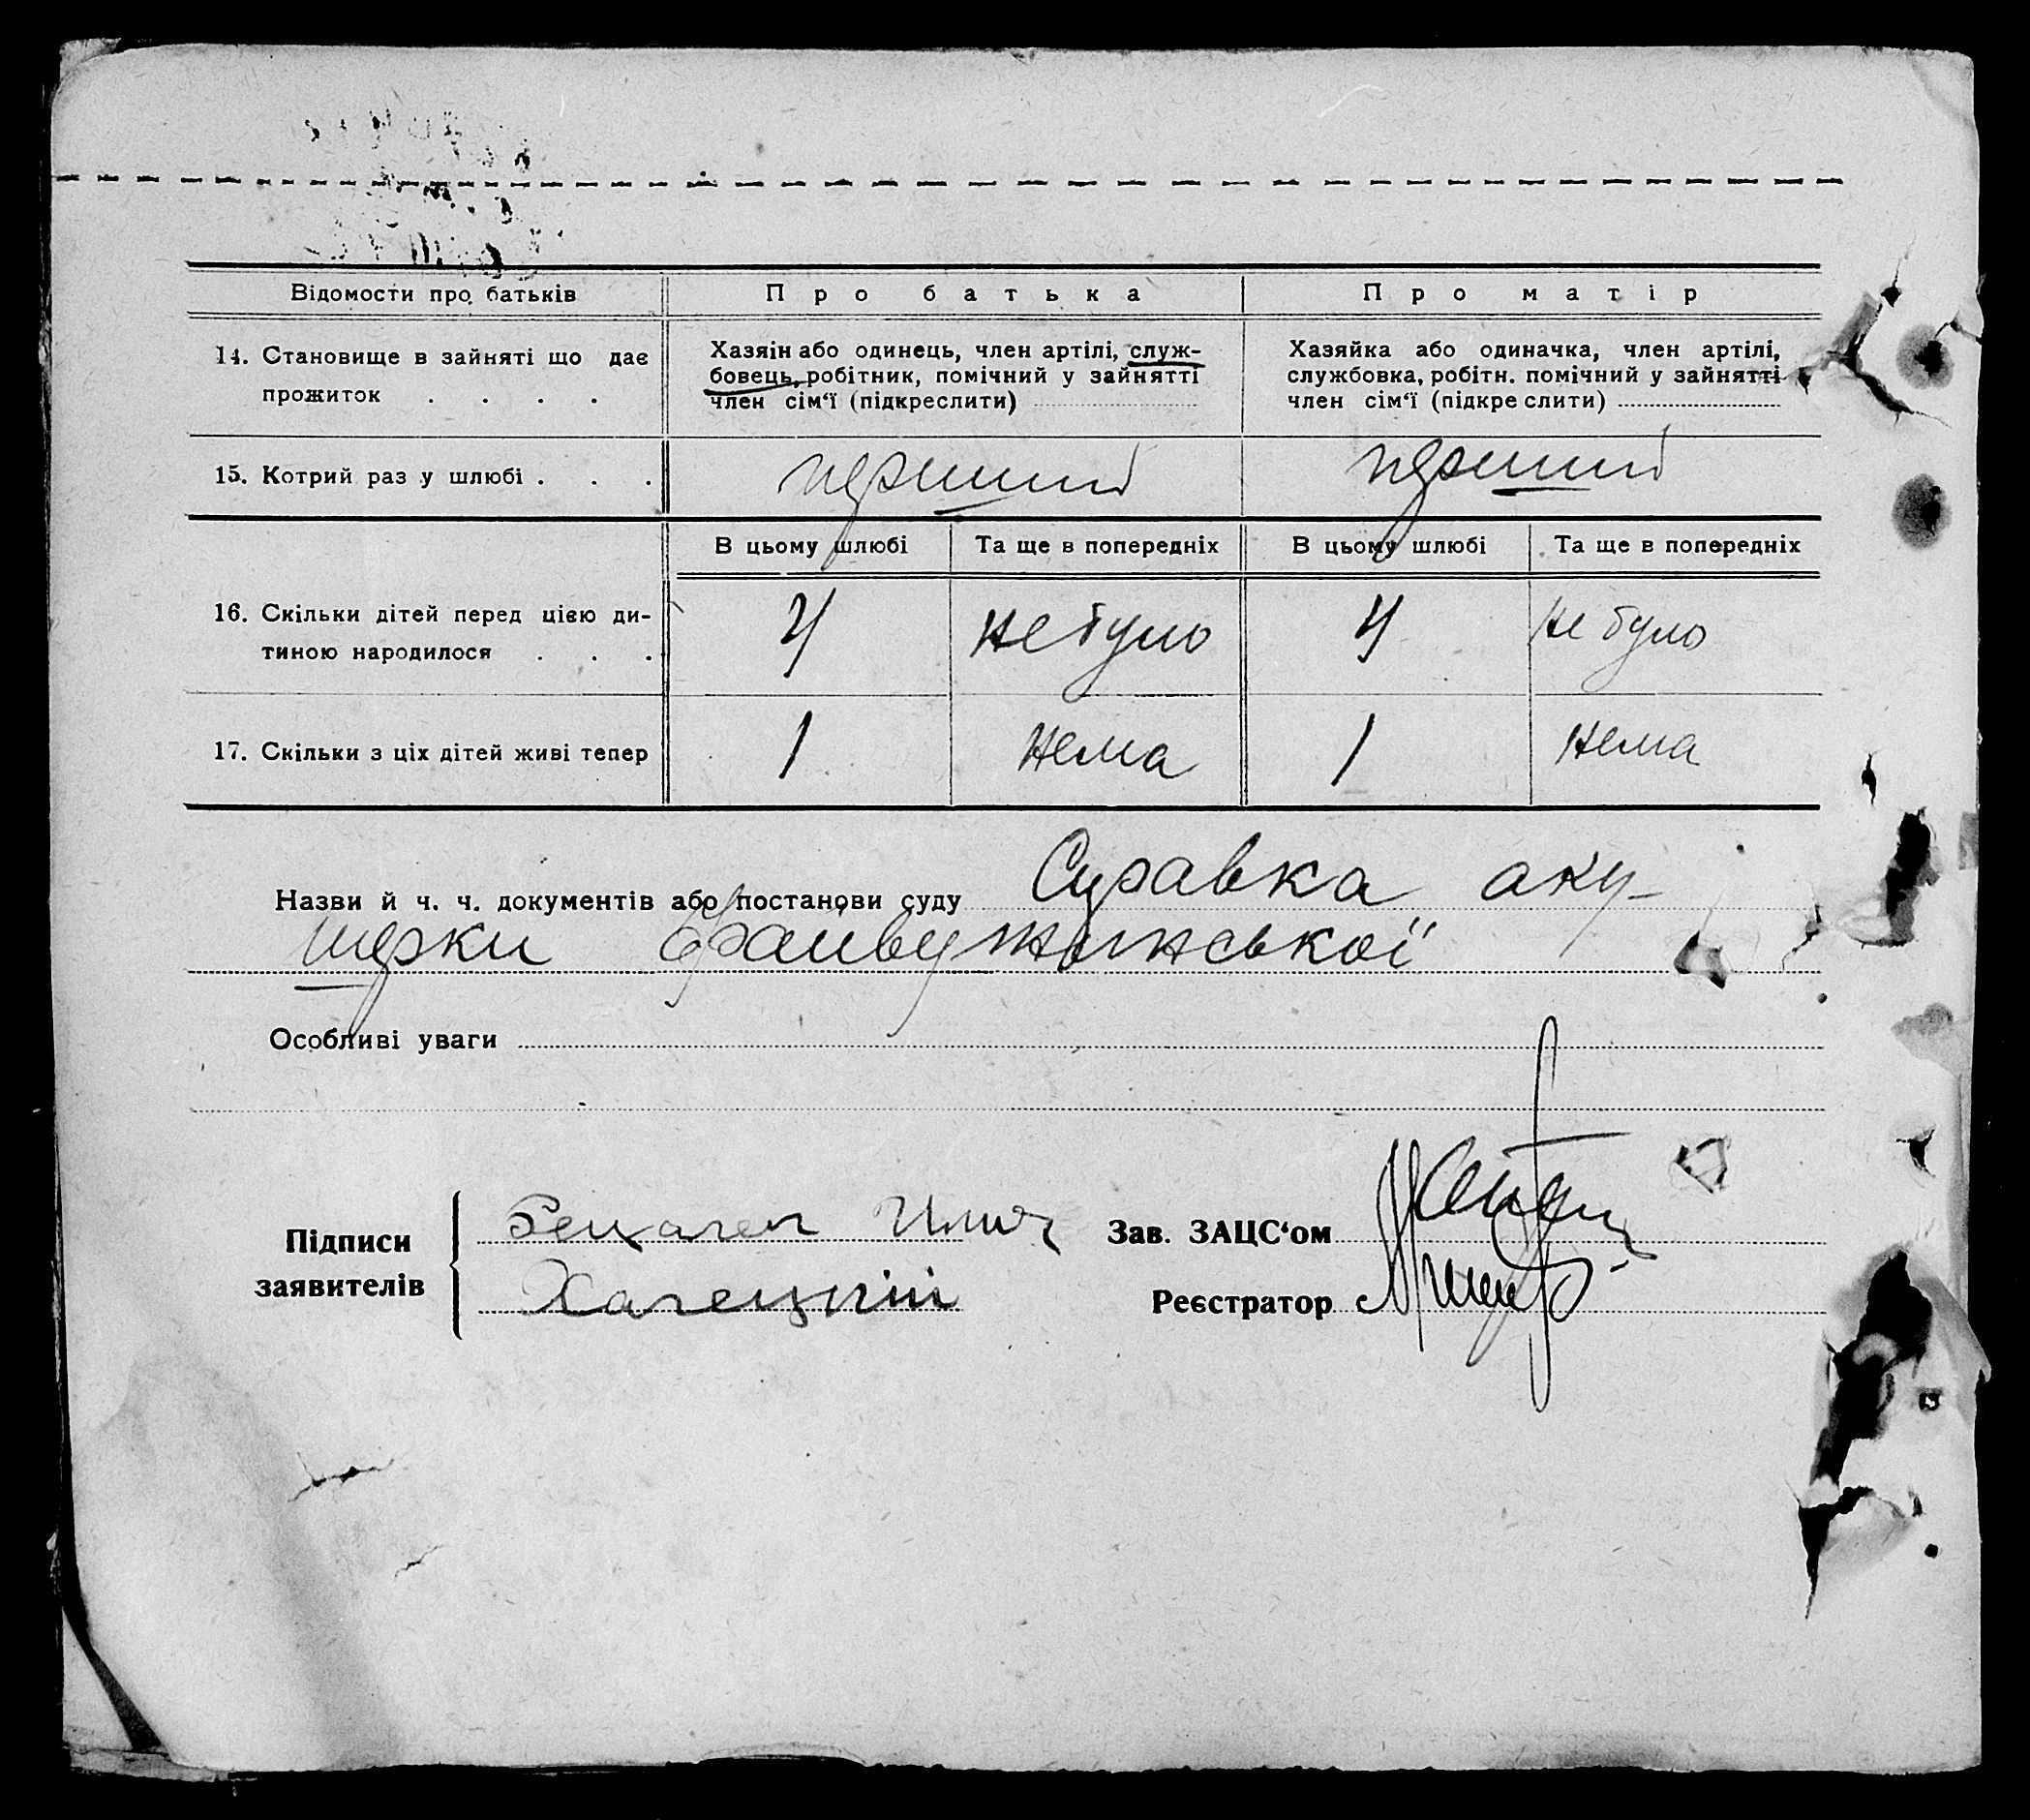 Відомости про батьків | Про батька | Про матір
14. Становище в зайняті що дає прожиток . . . . | Хазяін або одинець, член артілі, служ- | Хазяйка або одиначка, член артілі,
бовець, робітник, помічний у зайнятті | службовка, робітн. помічний у зайнятті
член сім‘ї (підкреслити) | член сім‘ї (підкреслити)
15. Котрий раз у шлюбі . . . | перший | перший
В цьому шлюбі | Та ще в попередніх | В цьому шлюбі | Та ще в попередніх
16. Скільки дітей перед цією ди-
тиною народилося . . . | 4 | не було | 4 | не було
17. Скільки з ціх дітей живі тепер | 1 | нема | 1 | нема
Назви й ч. ч. документів або постанови суду Справка аку-
шерки
Особливі уваги
Підписи
заявителів
Халецкий
Зав. ЗАЦС‘ом
Реєстратор